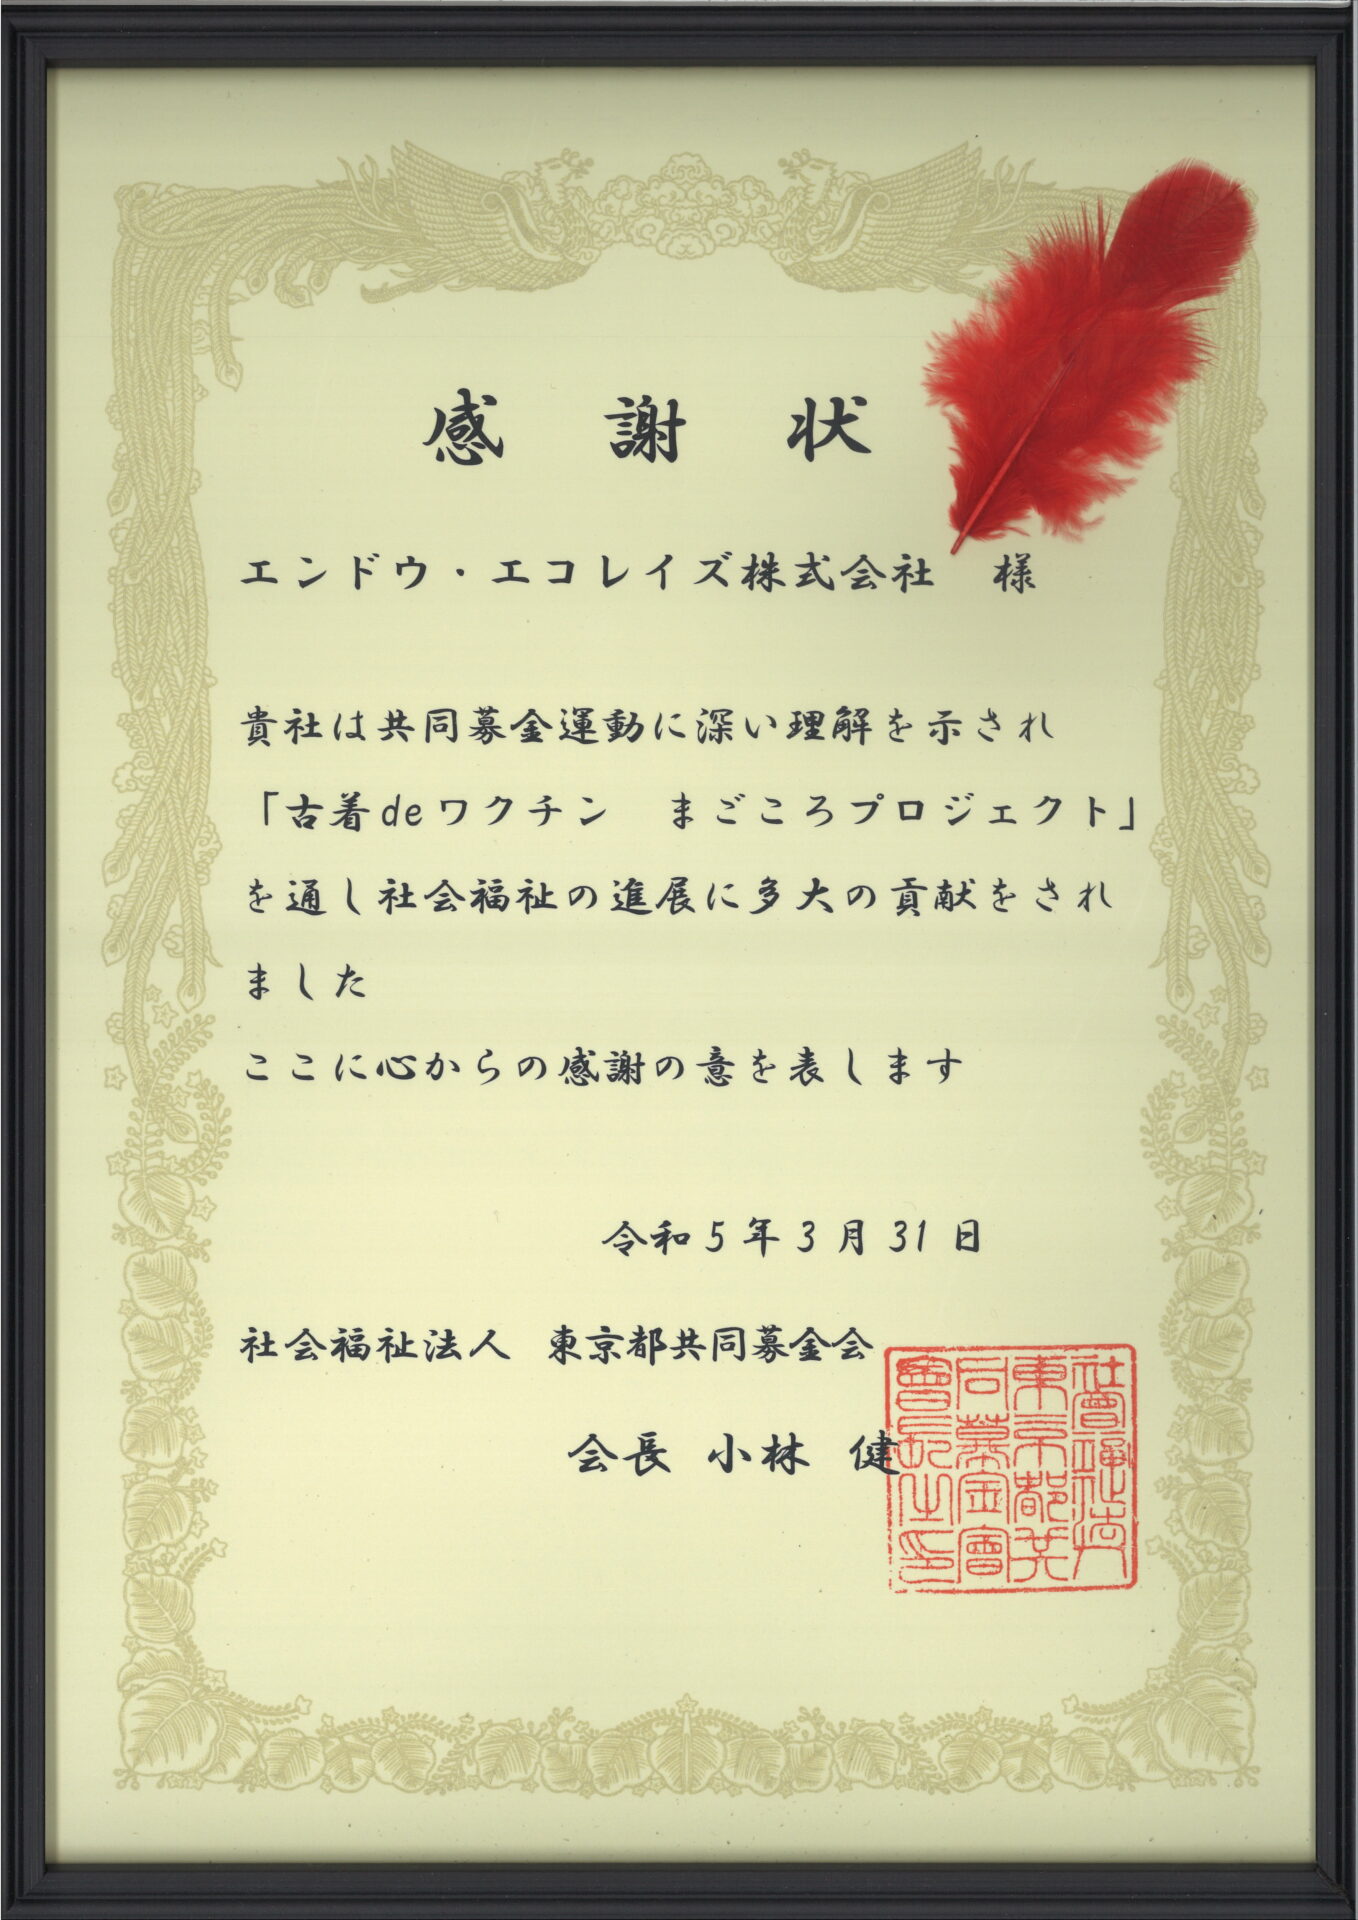 感謝状
エンドウ・エコレイズ株式会社　様
貴社は共同募金運動に深い理解を示され
「古着deワクチン　まごころプロジェクト」
を通し社会福祉の進展に多大の貢献をされ
ました
ここに心からの感謝の意を表します
令和5年3月31日
社会福祉法人　東京都共同募金会
会長 小林 健
社會福祉法人
東京都共
同募金會
會長之印